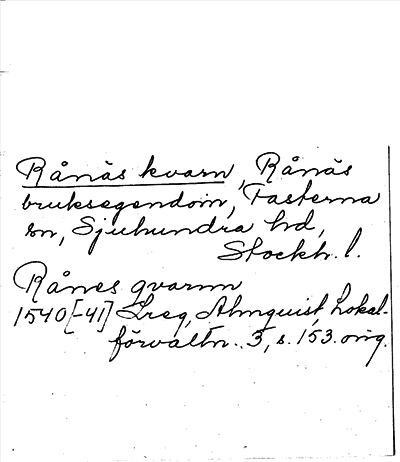 Rånäs kvarn, Rånäs
bruksegendom, Fasterna
sn, Sjuhundra hd,
Stockh. l.
Rånes qvarnn
1540[-41] Lreg, Almquist, Lokal-
förvaltn.. 3, s. 153. orig.